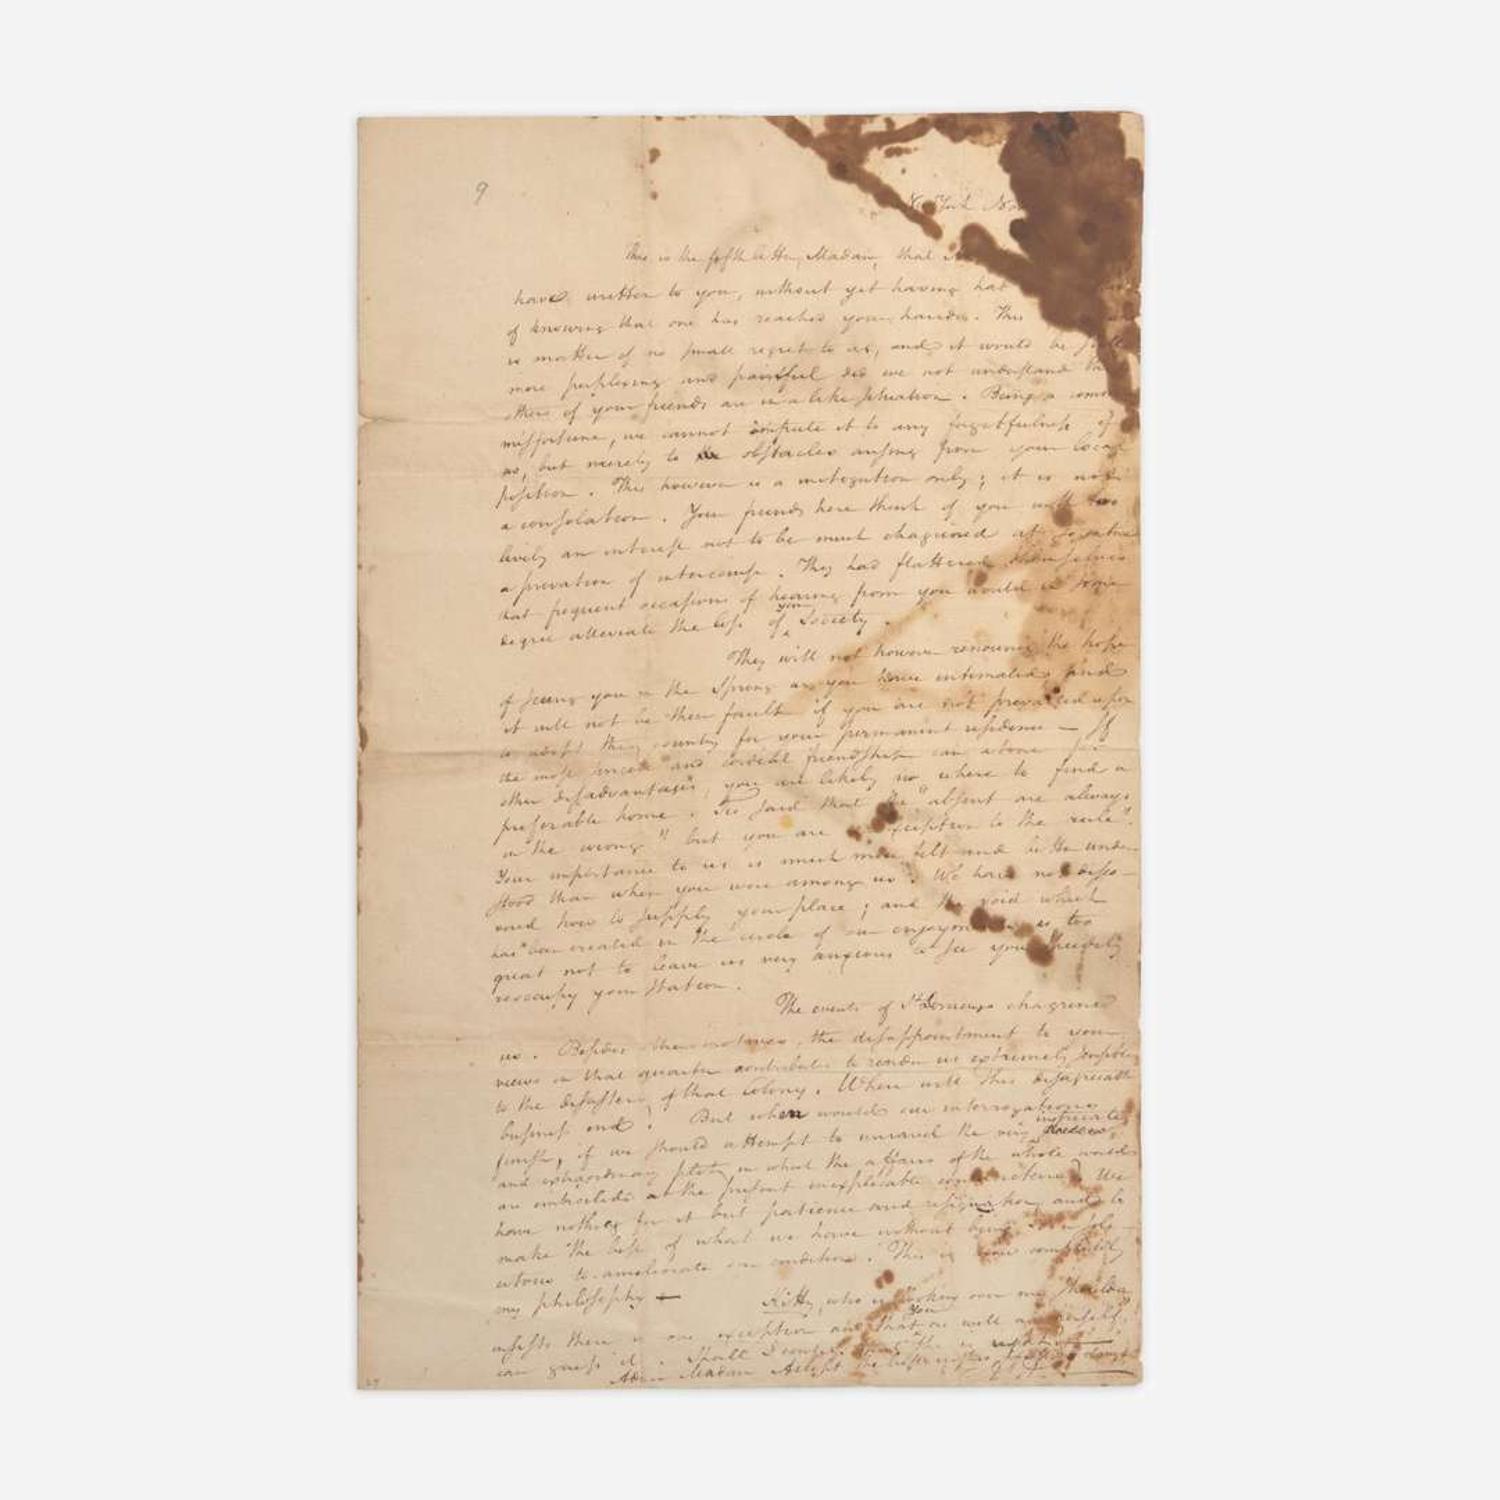 9
N. York Nov
This is the fifth letter, Madam, that
have written to you, without yet having had
of knowing that one has reached your hands. This
is matter of no small regret to us, and it would be still
more perplexing and painful did we not understand that
others of your friends are in a like situation. Being a common
misfortune, we cannot impute it to any forgetfulness of
us, but merely to obstacles arising from your local
position. This however is a mitigation only; it is not
a consolation. Your friends here think of you with too
lively an interest not to be much chagrined at so entire
a privation of intercourse. They had flattered themselves
that frequent occasions of hearing from you would in some
degree alleviate the loss of your Society.
They will not however renounce the hope
of seeing you in the Spring as you have intimated and
it will not be their fault if you are not prevailed upon
to adopt this country for your permanent residence — If
the most sincere and cordial friendship can atone for
other disadvantages, you are likely no where to find a
preferable home. Tis said that the "absent are always
in the wrong" but you are exception to the rule".
Your importance to us is much more felt and better under
stood than when you were among us. We have not disco-
vered how to supply your place; and the void which
has been created in the circle of our enjoyments is too
great not to leave us very anxious to see you speedily
reoccupy your station.
The events of St Domingo chagrined
us. Besides other motives, the disappointment to your
views in that quarter contributes to render us extremely sensible
to the disasters of that Colony. When will this disagreeable
business end? But when would our interrogations
finish, if we should attempt to unravel the very intricate
and extraordinary plots in which the affairs of the whole world
are embroiled at the present inexplicable conjuncture? We
have nothing for it but patience and resignation and to
make the best of what we have without being
to ameliorate our condition. This is now completely
my philosophy —
Kitty, who is looking over my Shoulder
insists there is one exception and that you as well as herself
can guess it. Shall I
Adieu Madam Accept the best wishes of